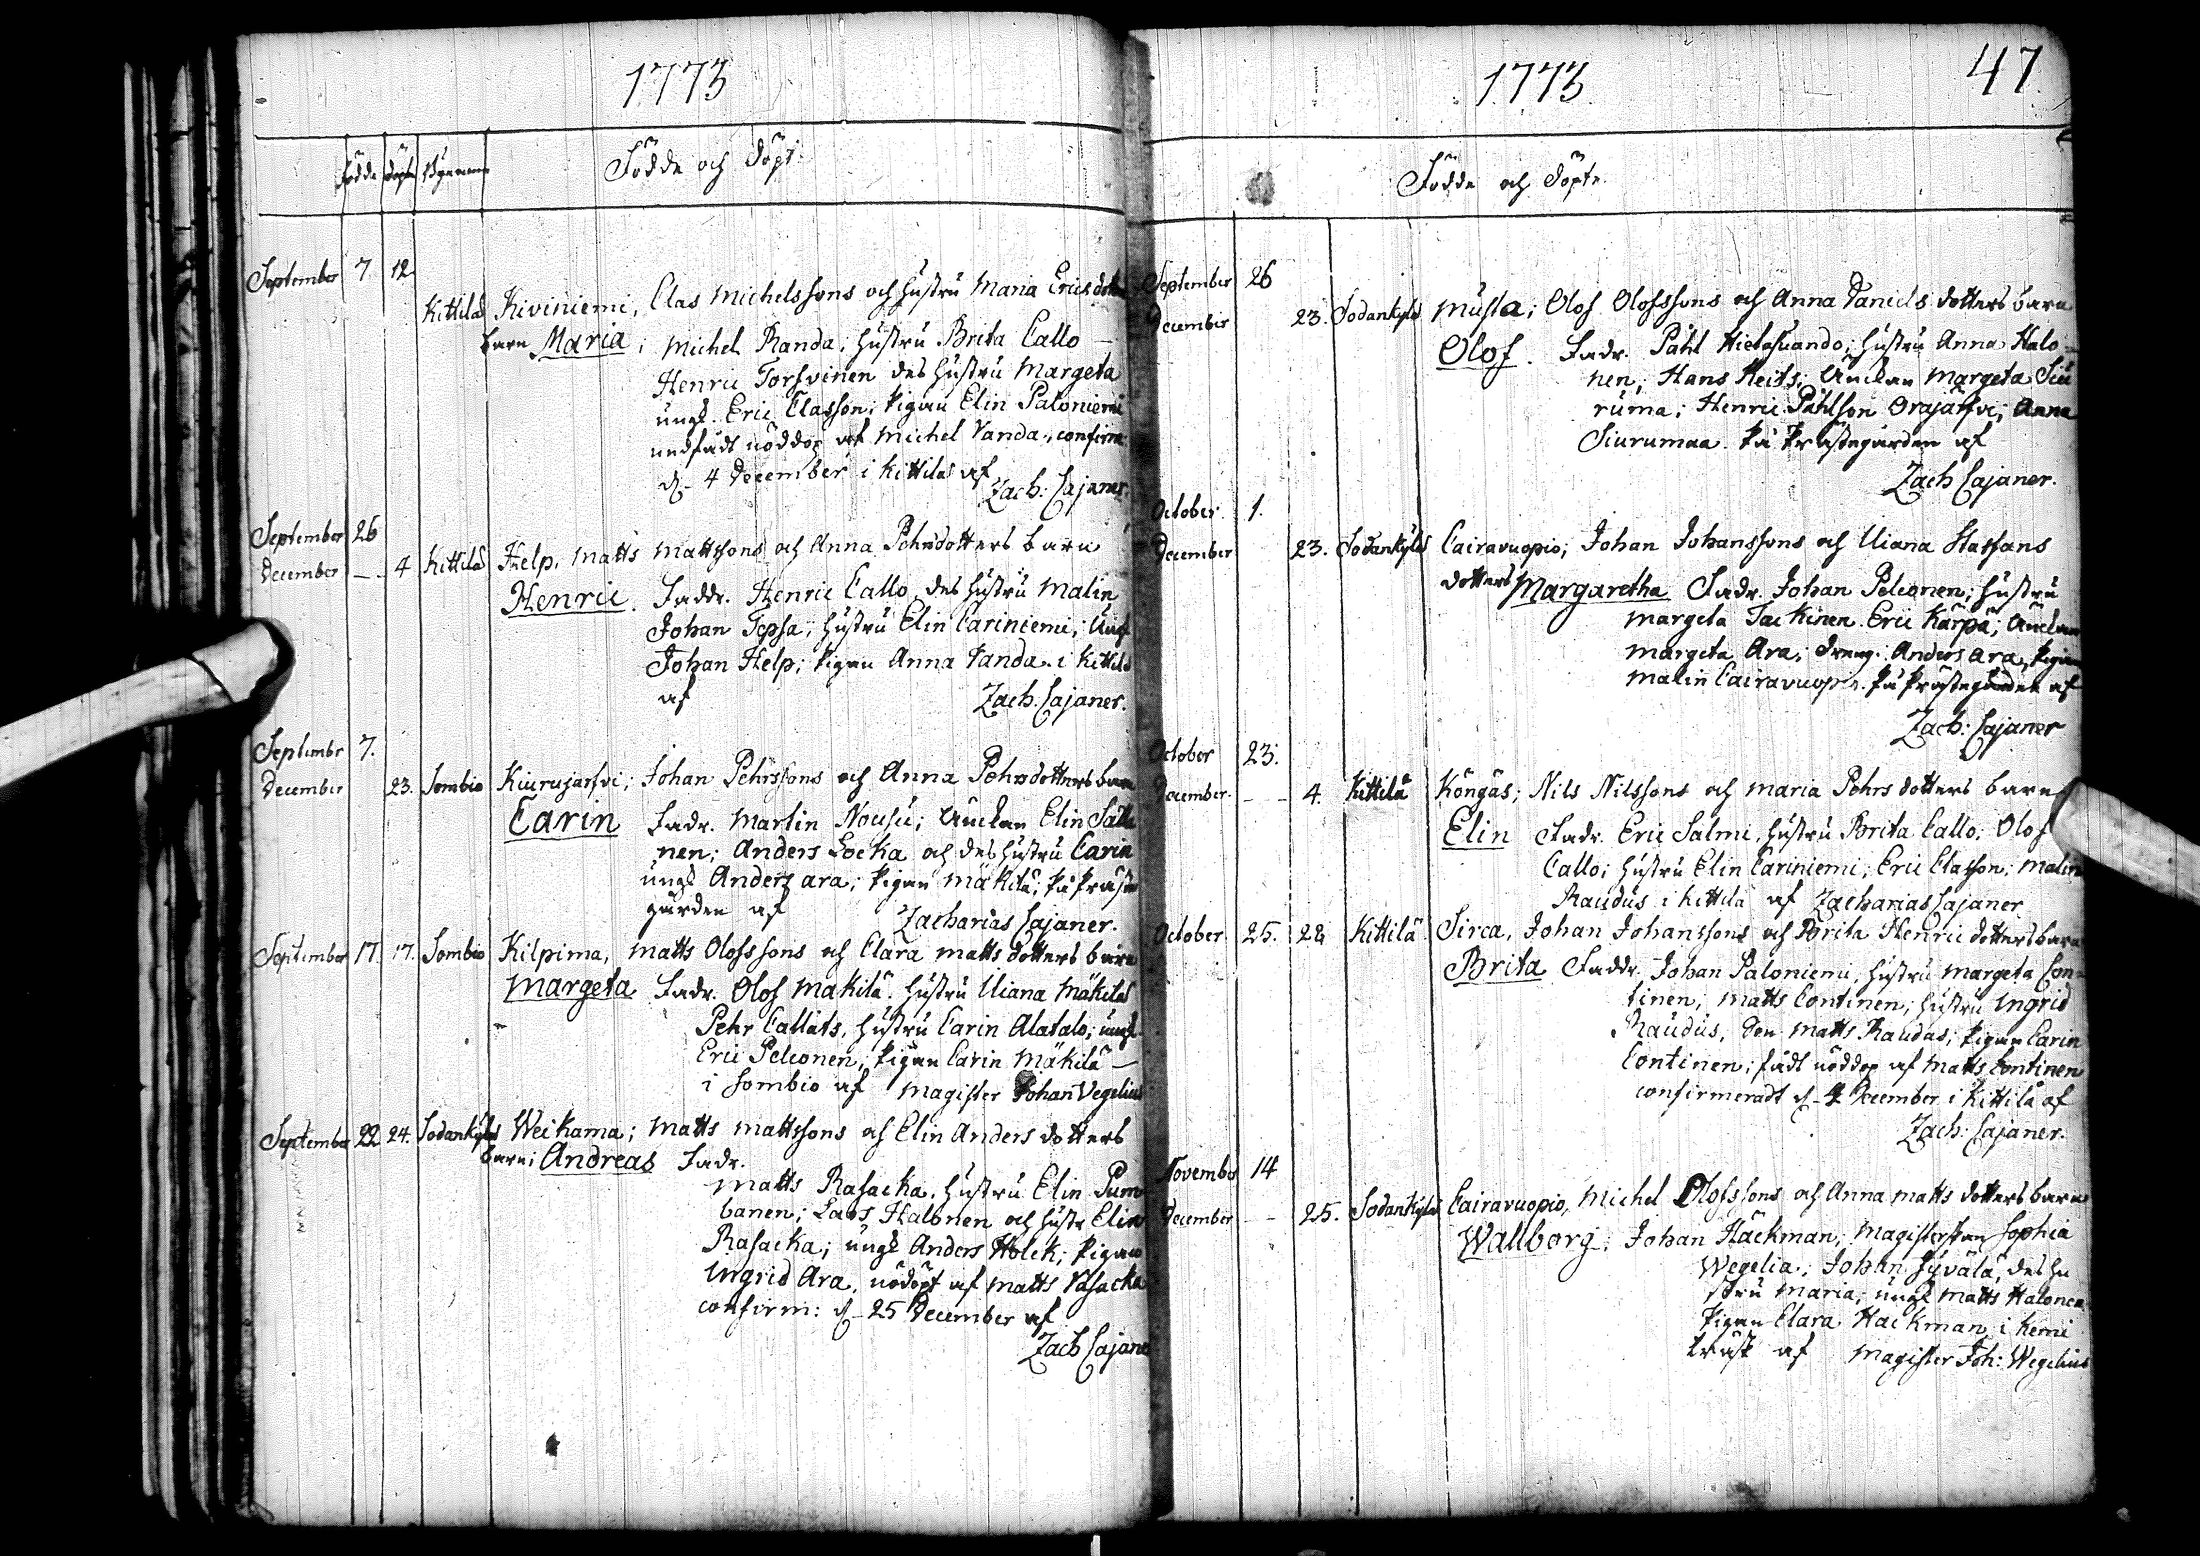 1773
Födde och döpt.
Födde döpte Byarnes
September 7 12
Kittilä Kiviniemi, Clas Michelssons och hustru Maria Ericsdotters
barn Maria; Michel Randa, hustru Brita Callo –
Henric Torsvinen des hustru Margeta
ungk. Eric Classon; pigan Elin Paloniemi
undfådt nöddop af Michel Vanda, confirm.
d. 4 December i Kittilä af
Zach: Cajaner.
September 26
December – 4 Kittilä Help, Matts Mattssons och Anna Pehrsdotters barn
Henric. Faddr. Henric Callo, des hustru Malin
Johan Tepsa, hustru Elin Cariniemi; Ungk
Johan Help; pigan Anna Vanda. i Kittilä
af Zach. Cajaner.
Septembr 7.
December 23. Sombio Kiurujarfvi; Johan Pehrssons och Anna Pehrsdotters barn
Carin Fadr. Martin Nousu; Änckan Elin Salli
nen; Anders Locka och des hustru Carin
ungk Anders Ara; pigan Mäkitä; på Präste
gården af Zacharias Cajaner.
September 17. 17. Sombio Kilpima, Matts Olofssons och Clara Matts dotters barn
Margeta Fadr. Olof Mäkitä. hustru Uliana Mäkitä
Pehr Callats, hustru Carin Alatalo; ungk
Eric Pelconen; pigan Carin Mäkitä –
i Sombio af Magister Johan Vegelius
September 22 24. Sodankylä Weikama; Matts Mattssons och Elin Anders dotters
barn; Andreas Fadr.
Matts Rasacka, hustru Elin Pum
banen; Lars Halonen och hustr Elin
Rasacka; ungk Anders Holck; pigan
Ingrid Ara, nödöpt af Matts Rasacka
confirm: d. 25 December af
Zach Cajaner
1773. 47.
Födde och döpte.
September 26
December 23. Sodankylä Musta; Olof Olofssons och Anna Daniels dotters barn
Olof. Fadr. Påhl Hietasuando; hustru Anna Halo
nen; Hans Keits; Änckan Margeta Siu
ruma; Henric Påhlson Orajärfvi; Anna
Siurumaa. På Prästegården af
Zach Cajaner.
October 1.
December 23. Sodankylä Cairavuopio; Johan Johanssons och Uliana Staffans
dotters Margaretha Fadr. Johan Pelconen; hustru
Margeta Tackinen. Eric Kärpä; Änckan
Margeta Ara; dreng. Anders Ara, pigan
Malin Cairavuopio. På Prästegården af
Zach: Cajaner
October 23.
December – 4. Kittilä Köngäs; Nils Nilssons och Maria Pehrs dotters barn
Elin Fadr. Eric Salmi, hustru Brita Callo; Olof
Callo; hustru Elin Cariniemi; Eric Classon; Malin
Raudus i Kittilä af Zacharias Cajaner
October 25. 28 Kittilä Sirca, Johan Johanssons och Brita Henric dotters barn
Brita Faddr. Johan Paloniemi, hustru Margeta Con-
tinen; Matts Continen; hustru Ingrid
Raudus, Son Matts Raudus; pigan Carin
Continen; fådt nöddop af Matts Continen
confirmeradt d. 4 December i Kittilä af
Zach: Cajaner.
November 14
December – 25. Sodankylä Cairavuopio, Michel Olofssons och Anna Matts dotters barn
Wallborg. Johan Häckman, Magisterskan Sophia
Wegelia; Johan Jyvälä, des hu
stru Maria; ungk Matts Halonen
pigan Clara Hackman, i Kemi
träsk af Magister Joh: Wegelius